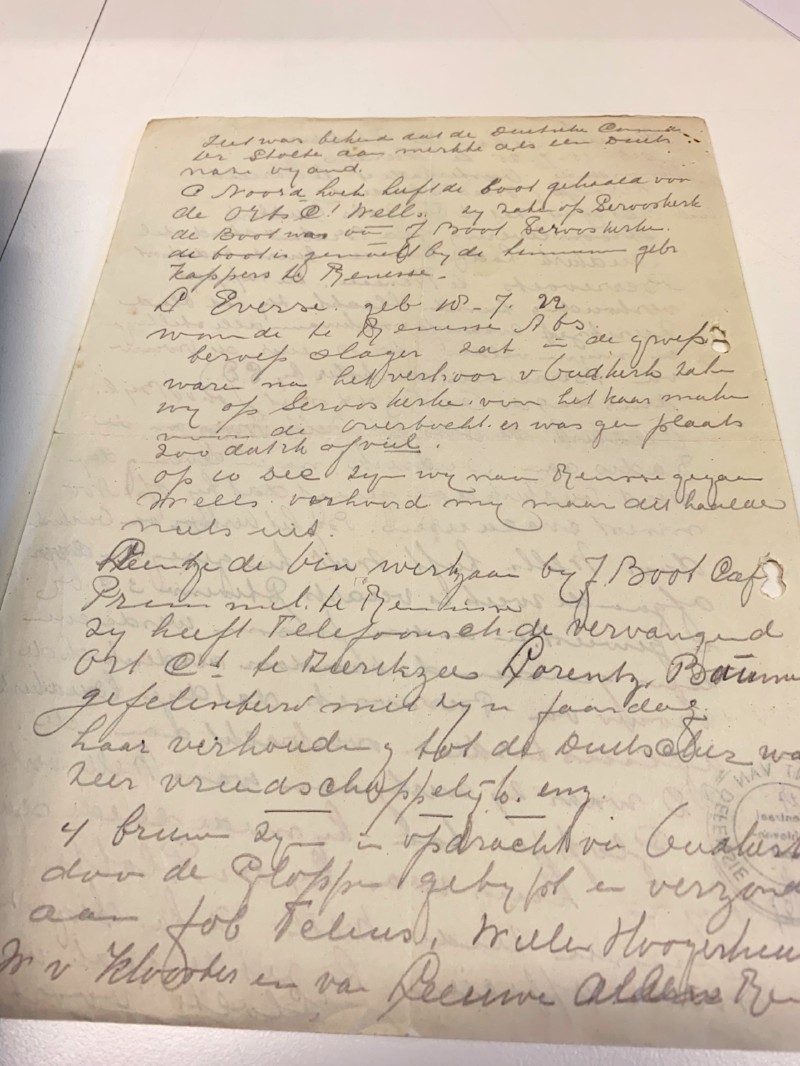 Het was bekend dat de Duitsche Comman
ter Stolte aan merkte als een Duits
nare vyand.
C Noord hoek heeft de boot gehaald voor
de Orts Ct Wells. zy zate op Serooskerk
de Boot was van J Boot Serooskerke.
de boot is gemaakt by de timmerm gebr
Kappers te Renesse.
P Everse. geb 18-7. 22
woonde te Renesse A 63
beroep slager zat in de groep
waren na het verhoor v Oudkerk zate
wy op Serooskerke. van het kaar maken
de overtocht. er was gen plaats
zoo dat ik afviel.
op 10 Dec zyn wy naar Renesse gegaan
Wells verhoord my maar dit haalde
niets uit.
Leentje de bin werkzaam by J. Boot Caf
te Renesse
zy heeft Telefoonisch de vervangend
Ort Ct te Zierikzee Lorentz,
gefeliciteerd met zyn jaardag.
haar verhouding tot de Duitscher wa
zeer vriendschappelyk. enz.
4 brieven zyn in opdracht van Oudkerk
door de Gloppe getypt en verzond
aan Job Telius, Willem Hoogerheu
W v Klooster en van Leeuwe allen Ren
VAN DEFENSIE